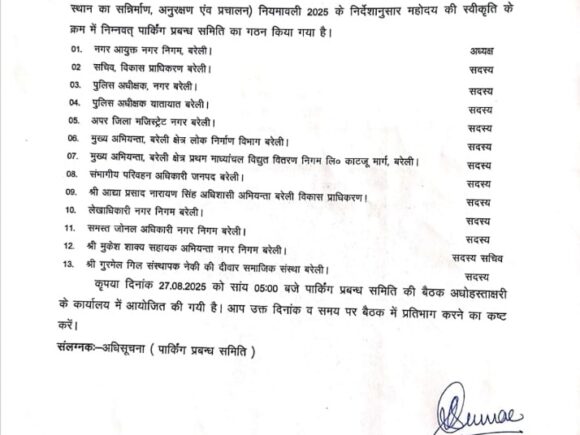 स्थान का सन्निर्माण, अनुरक्षण एंव प्रचालन) नियमावली 2025 के निर्देशानुसार महोदय की स्वीकृति के
क्रम में निम्नवत् पार्किंग प्रबन्ध समिति का गठन किया गया है।
01. नगर आयुक्त नगर निगम, बरेली। अध्यक्ष
02 सचिव, विकास प्राधिकरण बरेली। सदस्य
03. पुलिस अधीक्षक, नगर बरेली। सदस्य
04. पुलिस अधीक्षक यातायात बरेली। सदस्य
05. अपर जिला मजिस्ट्रेट नगर बरेली। सदस्य
06. मुख्य अभियन्ता, बरेली क्षेत्र लोक निर्माण विभाग बरेली। सदस्य
07. मुख्य अभियन्ता, बरेली क्षेत्र प्रथम मार्ध्यांचल विद्युत वितरण निगम लि० काटजू मार्ग, बरेली। सदस्य
08. संभागीय परिवहन अधिकारी जनपद बरेली। सदस्य
09. श्री आद्या प्रसाद नारायण सिंह अधिशासी अभियन्ता बरेली विकास प्राधिकरण। सदस्य
10. लेखाधिकारी नगर निगम बरेली। सदस्य
11. समस्त जोनल अधिकारी नगर निगम बरेली। सदस्य
12. श्री मुकेश शाक्य सहायक अभियन्ता नगर निगम बरेली। सदस्य सचिव
13. श्री गुरमेल गिल संस्थापक नेकी की दीवार समाजिक संस्था बरेली। सदस्य
कृपया दिनांक 27.08.2025 को सांय 05:00 बजे पार्किंग प्रबन्ध समिति की बैठक अधोहस्ताक्षरी
के कार्यालय में आयोजित की गयी है। आप उक्त दिनांक व समय पर बैठक में प्रतिभाग करने का कष्ट
करें।
संलग्नकः–अधिसूचना ( पार्किंग प्रबन्ध समिति )